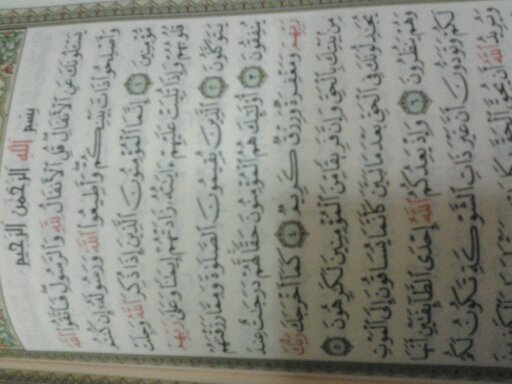 بِسْمِ اللَّهِ الرَّحْمَٰنِ الرَّحِيمِ
يَسْأَلُونَكَ عَنِ الْأَنفَالِ قُلِ الْأَنفَالُ لِلَّهِ وَالرَّسُولِ فَاتَّقُوا اللَّهَ
وَأَصْلِحُوا ذَاتَ بَيْنِكُمْ وَأَطِيعُوا اللَّهَ وَرَسُولَهُ إِن كُنتُم
مُّؤْمِنِينَ ١ إِنَّمَا الْمُؤْمِنُونَ الَّذِينَ إِذَا ذُكِرَ اللَّهُ وَجِلَتْ
قُلُوبُهُمْ وَإِذَا تُلِيَتْ عَلَيْهِمْ آيَاتُهُ زَادَتْهُمْ إِيمَانًا وَعَلَىٰ رَبِّهِمْ
يَتَوَكَّلُونَ ٢ الَّذِينَ يُقِيمُونَ الصَّلَاةَ وَمِمَّا رَزَقْنَاهُمْ
يُنفِقُونَ ٣ أُولَٰئِكَ هُمُ الْمُؤْمِنُونَ حَقًّا لَّهُمْ دَرَجَاتٌ عِندَ
رَبِّهِمْ وَمَغْفِرَةٌ وَرِزْقٌ كَرِيمٌ ٤ كَمَا أَخْرَجَكَ رَبُّكَ
مِن بَيْتِكَ بِالْحَقِّ وَإِنَّ فَرِيقًا مِّنَ الْمُؤْمِنِينَ لَكَارِهُونَ ٥
يُجَادِلُونَكَ فِي الْحَقِّ بَعْدَمَا تَبَيَّنَ كَأَنَّمَا يُسَاقُونَ إِلَى الْمَوْتِ
وَهُمْ يَنظُرُونَ ٦ وَإِذْ يَعِدُكُمُ اللَّهُ إِحْدَى الطَّائِفَتَيْنِ أَنَّهَا
لَكُمْ وَتَوَدُّونَ أَنَّ غَيْرَ ذَاتِ الشَّوْكَةِ تَكُونُ لَكُمْ
وَيُرِيدُ اللَّهُ أَن يُحِقَّ الْحَقَّ